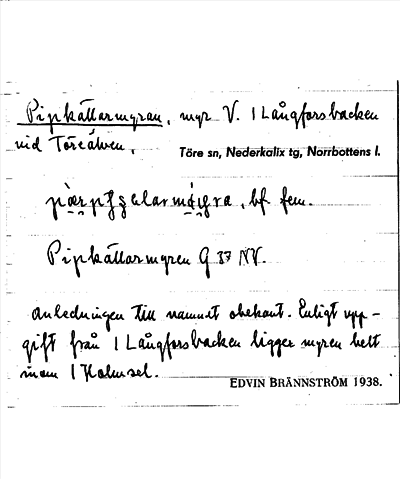 Pipkällarmyran, myr V. 1 Långforsbacken
vid Töreälven.
Töre sn, Nederkalix tg, Norrbottens l.
bf fem.
Pipkällarmyren G 37 NV.
Anledningen till namnet obekant. Enligt upp-
gift från 1 Långforsbacken ligger myren helt
inom 1
EDVIN BRÄNNSTRÖM 1938.